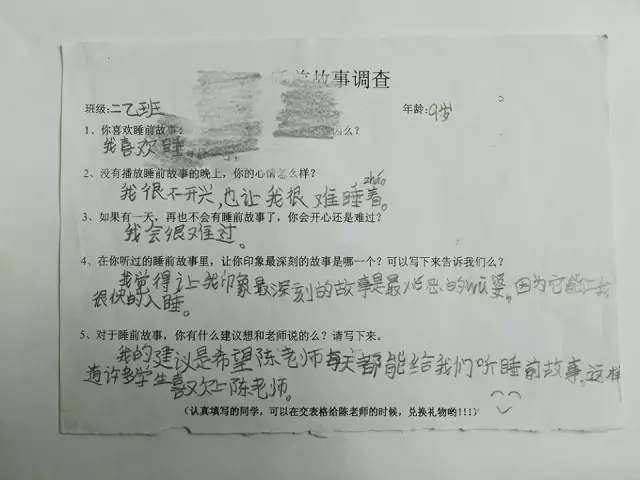 睡前故事调查
班级:二乙班 年龄:9岁
1、你喜欢睡前故事 因么?
我喜欢睡
2、没有播放睡前故事的晚上，你的心情怎么样?
zháo
我很不开兴,也让我很难睡着。
3、如果有一天，再也不会有睡前故事了，你会开心还是难过?
我会很难过。
4、在你听过的睡前故事里，让你印象最深刻的故事是哪一个? 可以写下来告诉我们么?
我觉得让我印象最深刻的故事是最 恶的 婆。因为它能让我
很快的入睡。
5、对于睡前故事，你有什么建议想和老师说的么? 请写下来。
我的建议是希望陈老师每天都能给我们听睡前故事。这样
许多学生喜欢 陈老师。
(认真填写的同学，可以在交表格给陈老师的时候，兑换礼物哟!!!)